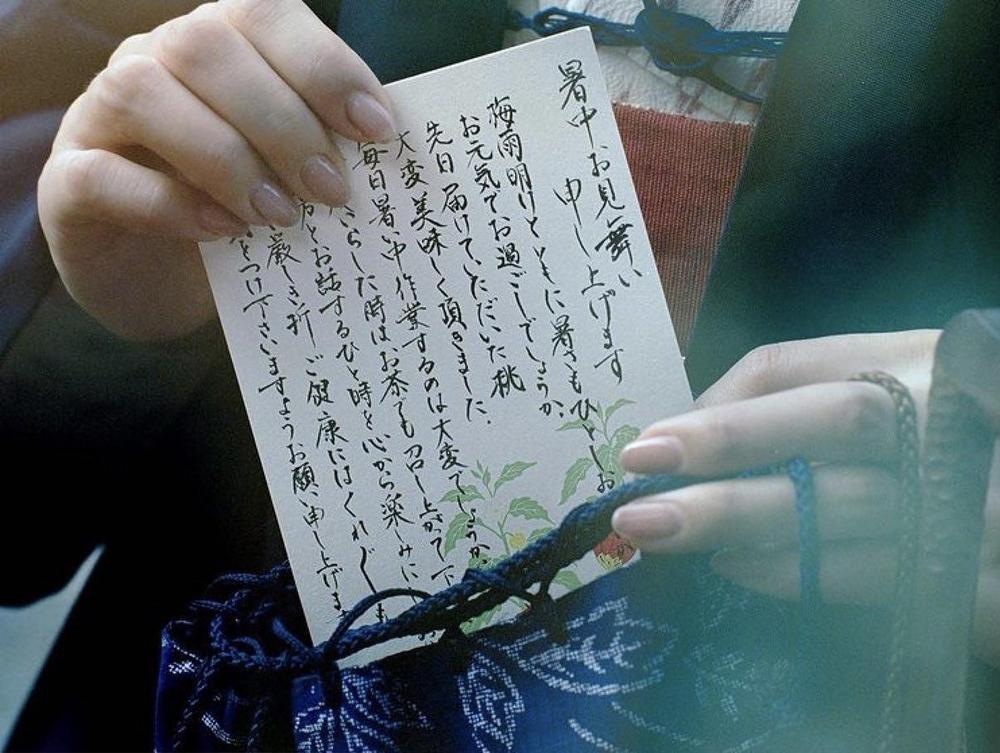 暑中お見舞い
申し上げます
梅雨明けとともに暑さもひとしお
お元気でお過ごしでしょうか。
先日届けていただいた桃
大変美味しく頂きました。
毎日暑い中作業するのは大変でしょうか。
さらした時はお茶でも召し上がって下
方とお話するひと時を心から楽しみに
厳しき折ご健康にはくれぐも
をつけ下さいますようお願い申し上げま